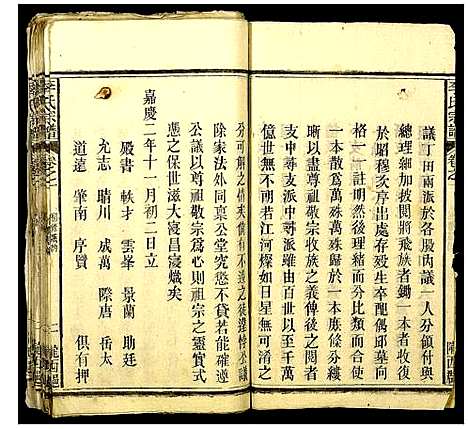 李氏宗譜
卷之一
隴西郡
議丁田兩派於各股內議一人分領付與
總理細加披閱將飛族者鋤一本者收復
於昭穆次序出處存歿生卒配偶邱墓向
一格一註明然後理緒而分系條而貫之
一本散爲萬殊萬殊歸於一本條分縷
晰以昭尊祖敬宗收族之義俾後之閱者
法祖宗之尊尋派雖由百世以至千萬
億世無窮若江河燦如日星無可淆之
分可解
除家法外同稟公堂究懲不貸若能遵
公議以尊祖敬宗爲心則祖宗之靈實式
憑之保世滋大寖昌寖熾矣
嘉慶二年十一月初二日立
殿書 軼才 雲峯 景蘭 助廷
允志 晴川 成萬 際唐 岳太
道遠 肇南 序賢 俱有押
李氏宗譜
卷之一